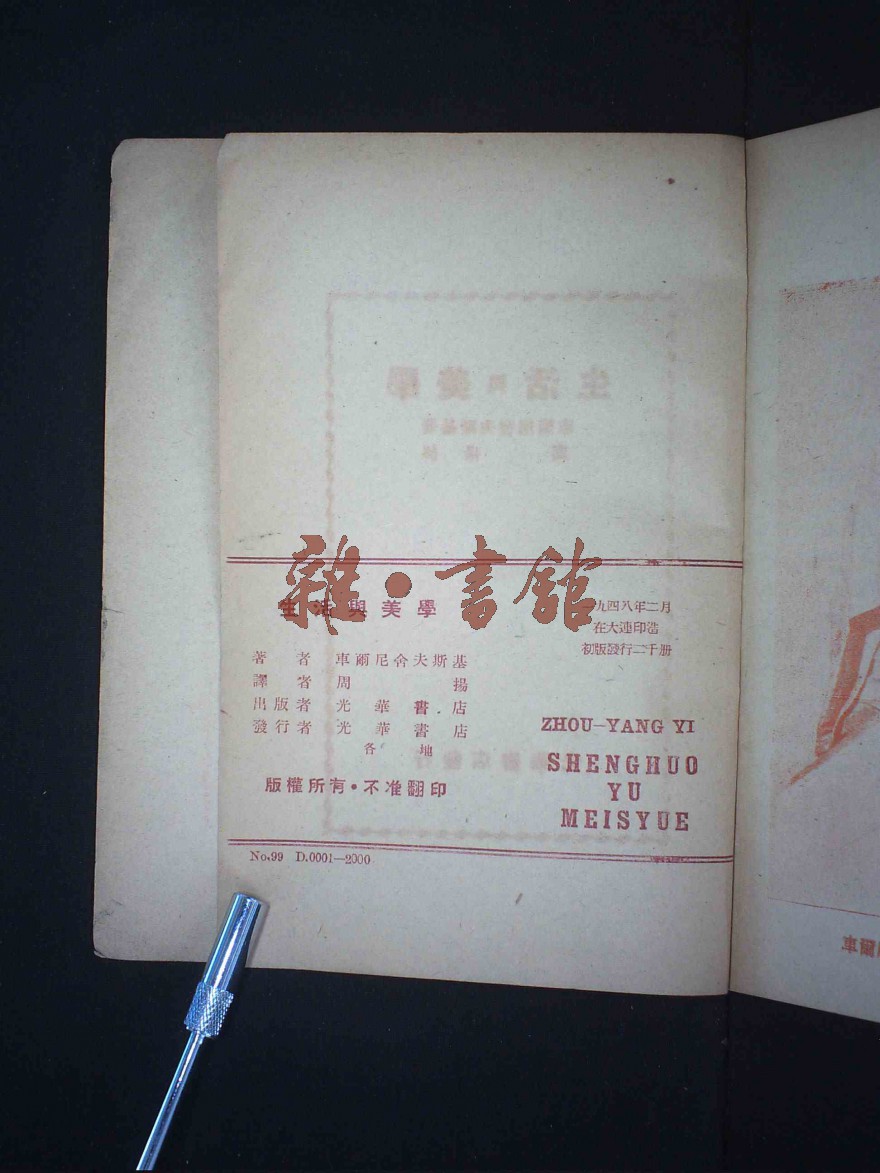 雜·書館
生活與美學
著者 車爾尼舍夫斯基
譯者 周揚
出版者 光華書店
發行者 光華書店
各地
版權所有·不准翻印
一九四八年二月
在大連印造
初版發行二千册
ZHOU-YANG YI
SHENGHUO
YU
MEISYUE
No.99 D.0001—2000
生活與美學
車爾